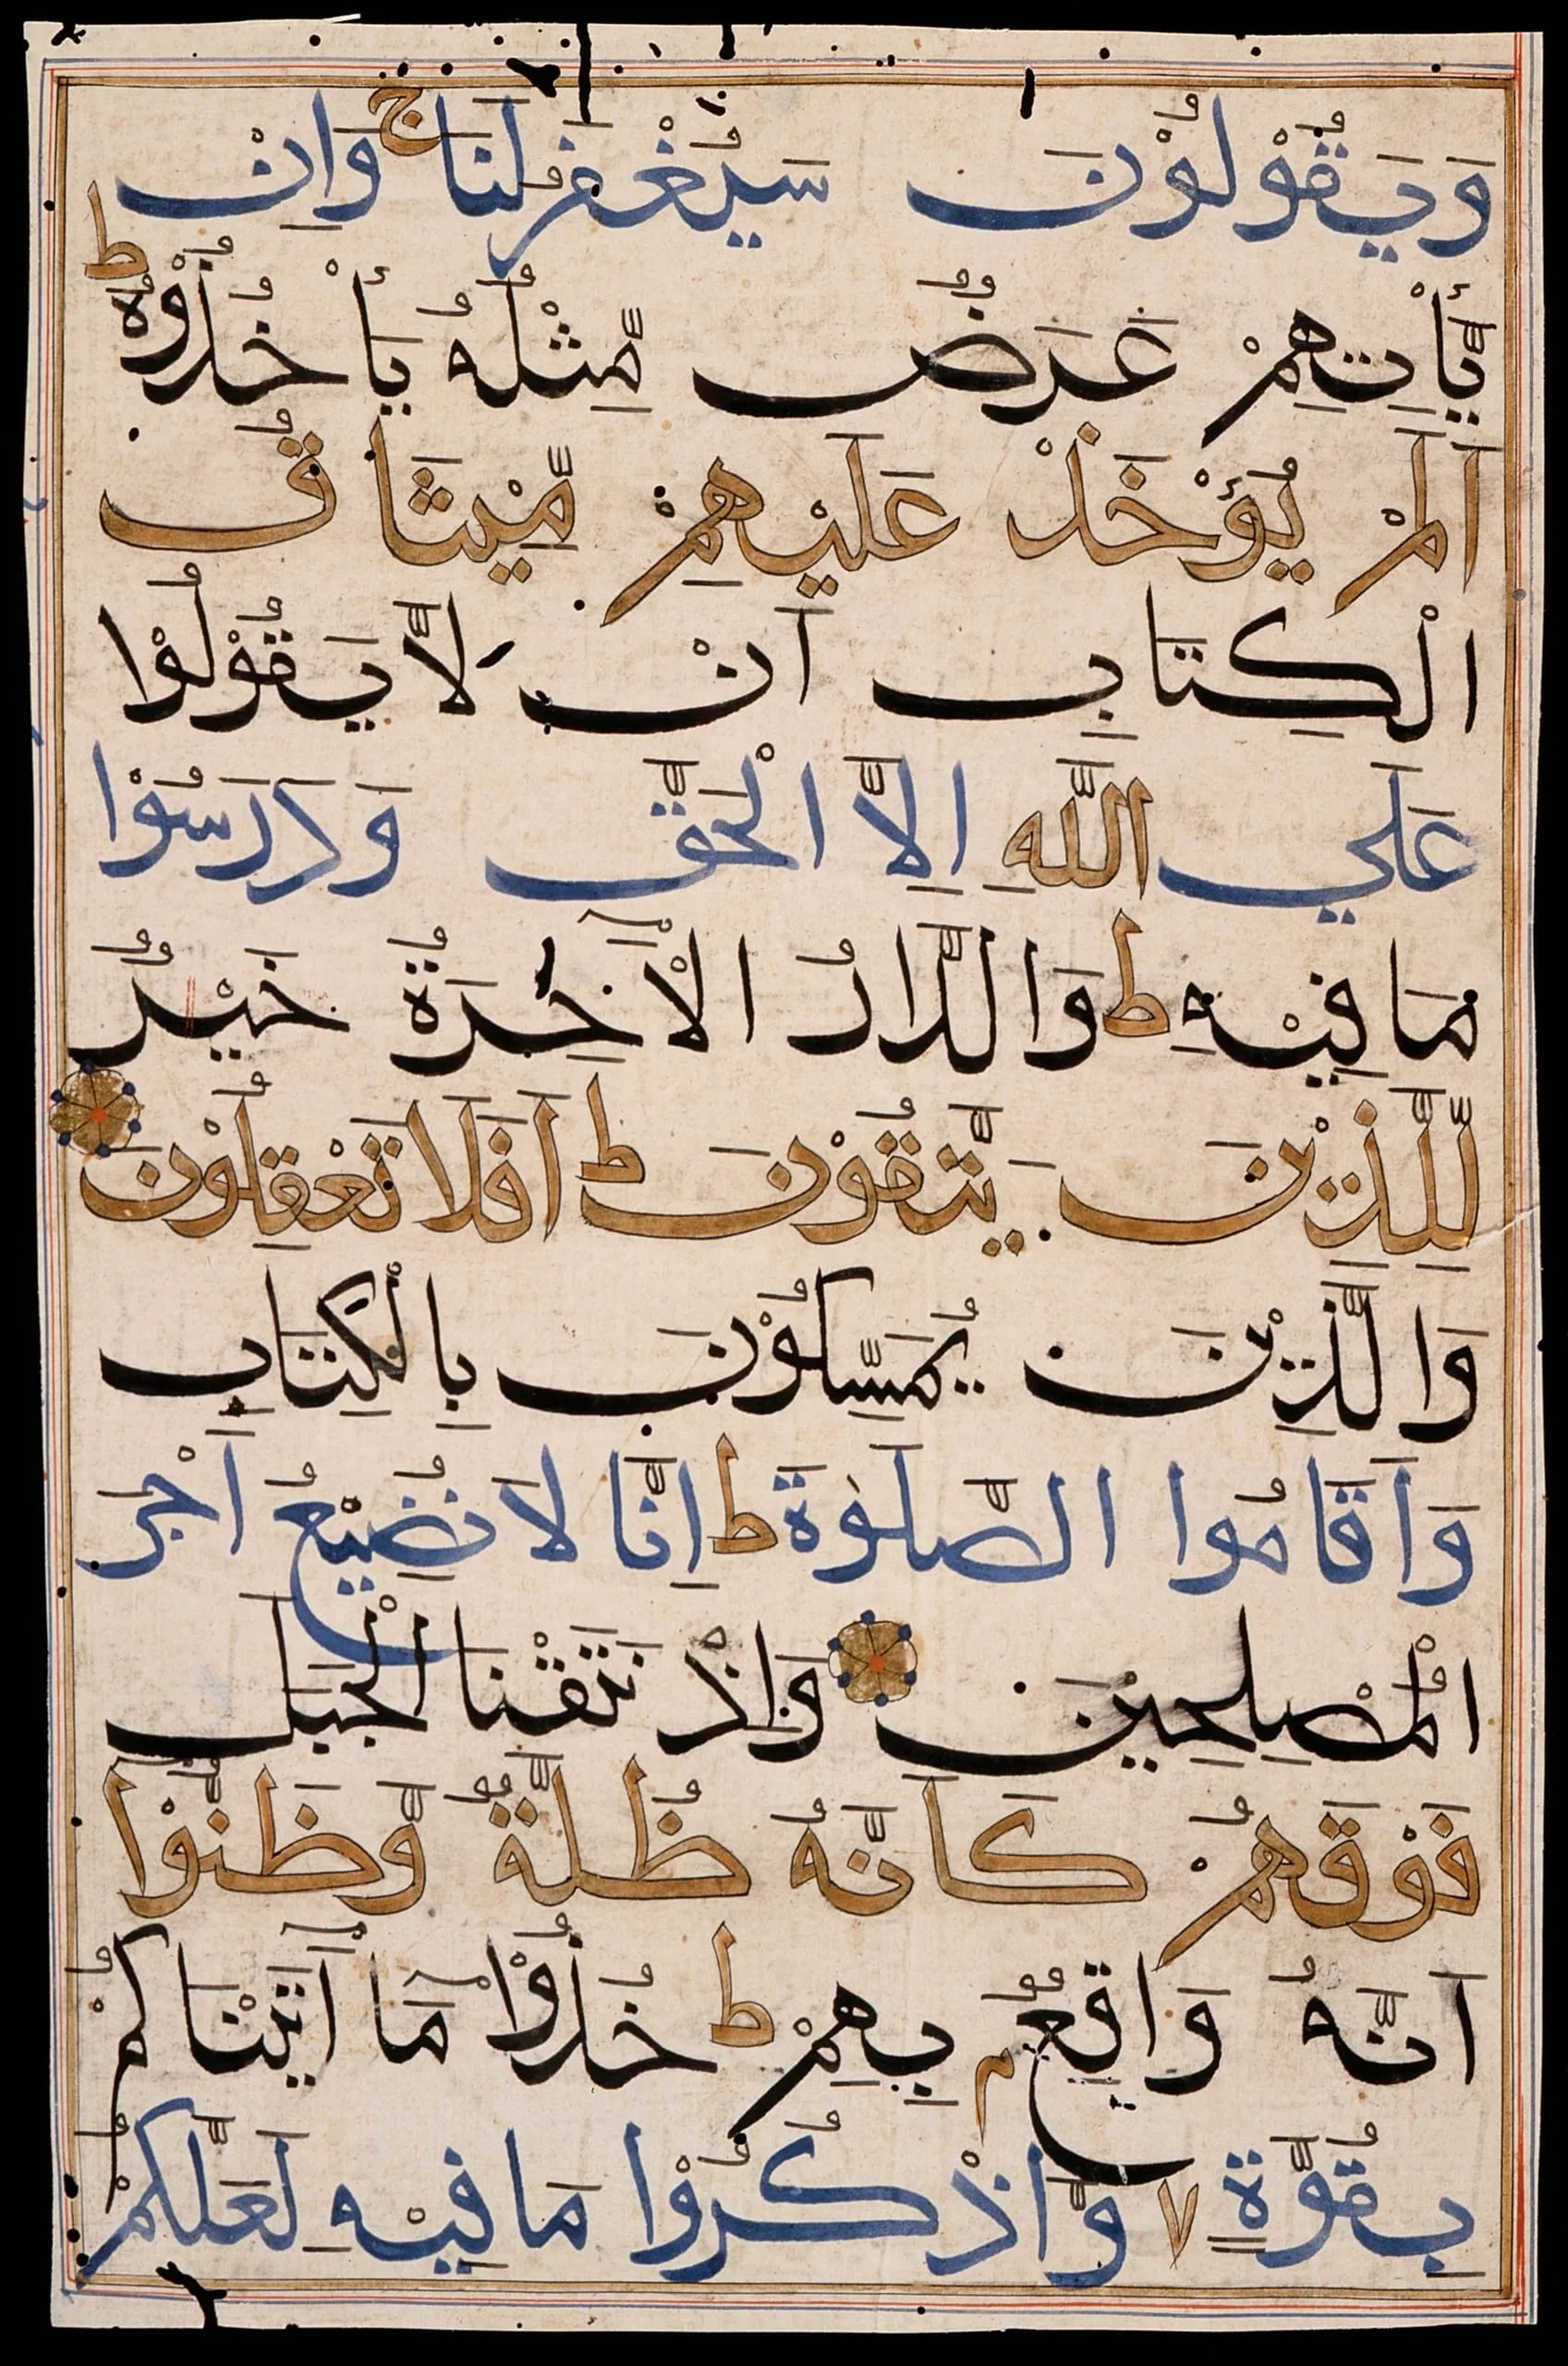 وَيَقُوْلُوْنَ سَيُغْفَرُ لَنَا ج وَاِنْ
يَّأْتِهِمْ عَرَضٌ مِّثْلُهُ يَأْخُذُوْهُ ط
اَلَمْ يُؤْخَذْ عَلَيْهِمْ مِّيْثَاقُ
الْكِتَابِ اَنْ لَّا يَقُوْلُوْا
عَلَي اللَّهِ اِلَّا الْحَقَّ وَدَرَسُوْا
مَا فِيْهِ ط وَالدَّارُ الْاٰخِرَةُ خَيْرٌ
لِّلَّذِيْنَ يَتَّقُوْنَ ط اَفَلَا تَعْقِلُوْنَ
وَالَّذِيْنَ يُمَسِّكُوْنَ بِالْكِتَابِ
وَاَقَامُوا الصَّلَوٰةَ ط اِنَّا لَا نُضِيْعُ اَجْرَ
الْمُصْلِحِيْنَ وَاِذْ نَتَقْنَا الْجَبَلَ
فَوْقَهُمْ كَاَنَّهُ ظُلَّةٌ وَّظَنُّوْا
اَنَّهُ وَاقِعٌ م بِهِمْ ط خُذُوْا مَا اٰتَيْنَاكُمْ
بِقُوَّةٍ ٧ وَّاذْكُرُوْا مَا فِيْهِ لَعَلَّكُمْ